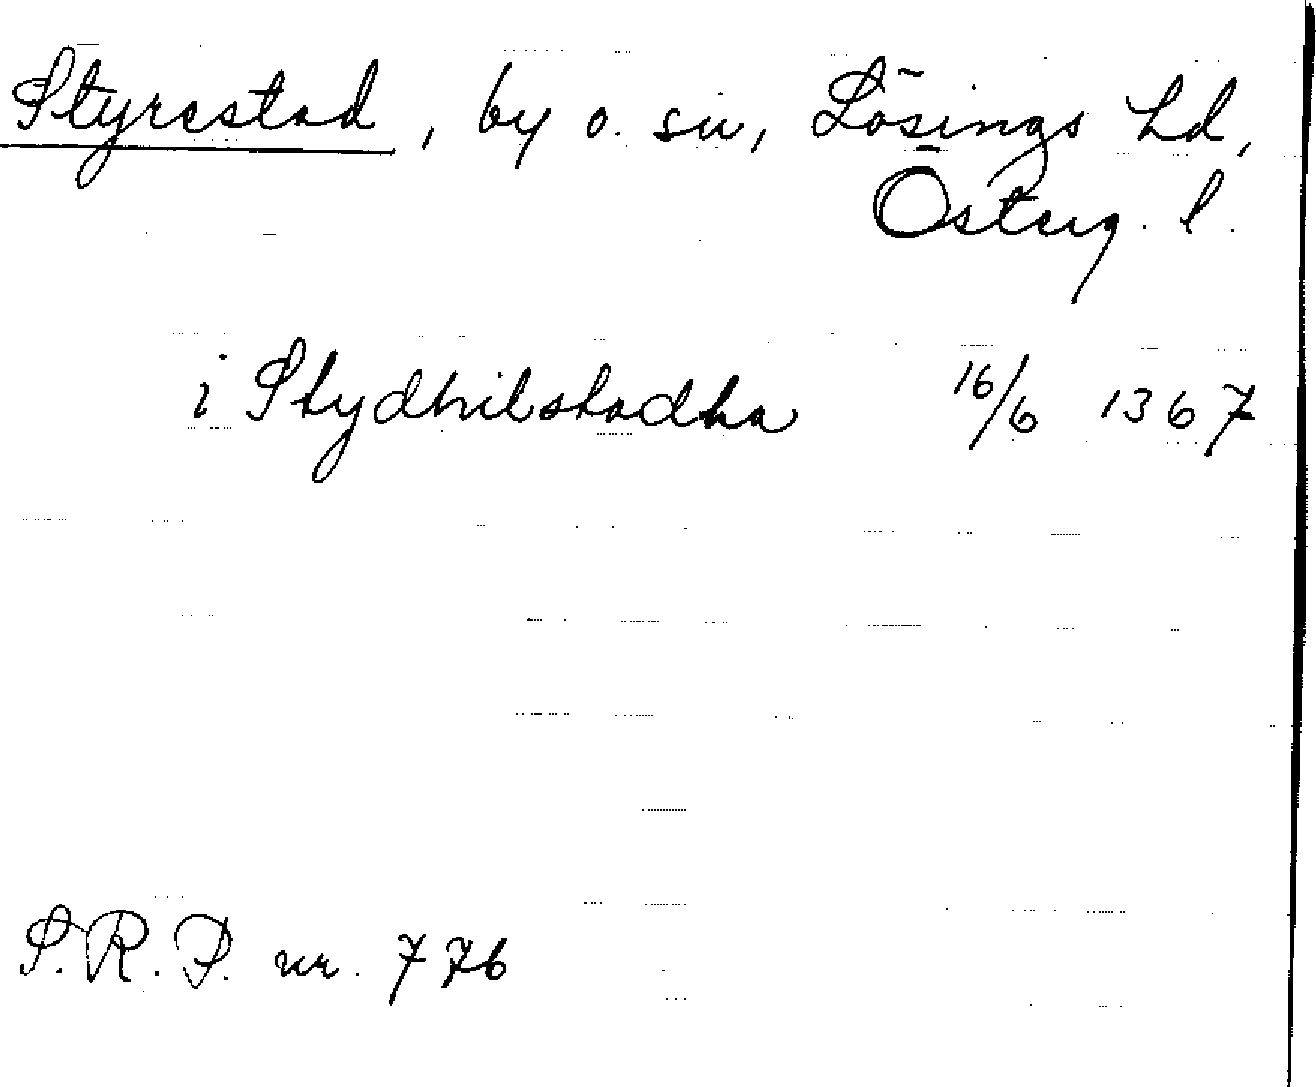 Styrestad, by o. sn, Lösings hd,
Österg. l.
i Stydhilstadha 16/6 1367
S.R.P. nr. 776